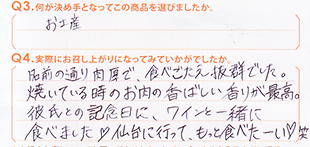 Q3.何が決め手となってこの商品を選びましたか。
お土産
Q4.実際にお召し上がりになってみていかがでしたか。
名前の通り肉厚で、食べごたえ抜群でした。
焼いている時のお肉の香ばしい香りが最高。
彼氏との記念日に、ワインと一緒に
食べました♡仙台に行って、もっと食べたーい♡笑